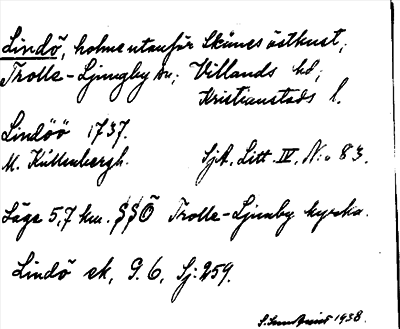 Lindö, holme utanför Skånes östkust,
Trolle-Ljungby sn; Villands hd;
Kristianstads l.
Lindöö 1737.
M. Kullenbergh. SjA. Litt. IV, N:o 83.
Läge 5,7 km. SSÖ Trolle-Ljunby kyrka.
Lindö ek, G. 6, Sj: 259.
1938.